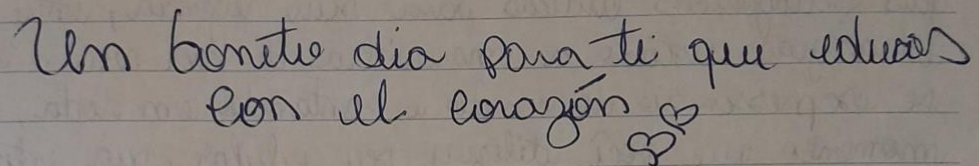 Un bonito dia para ti que educas
con el corazón